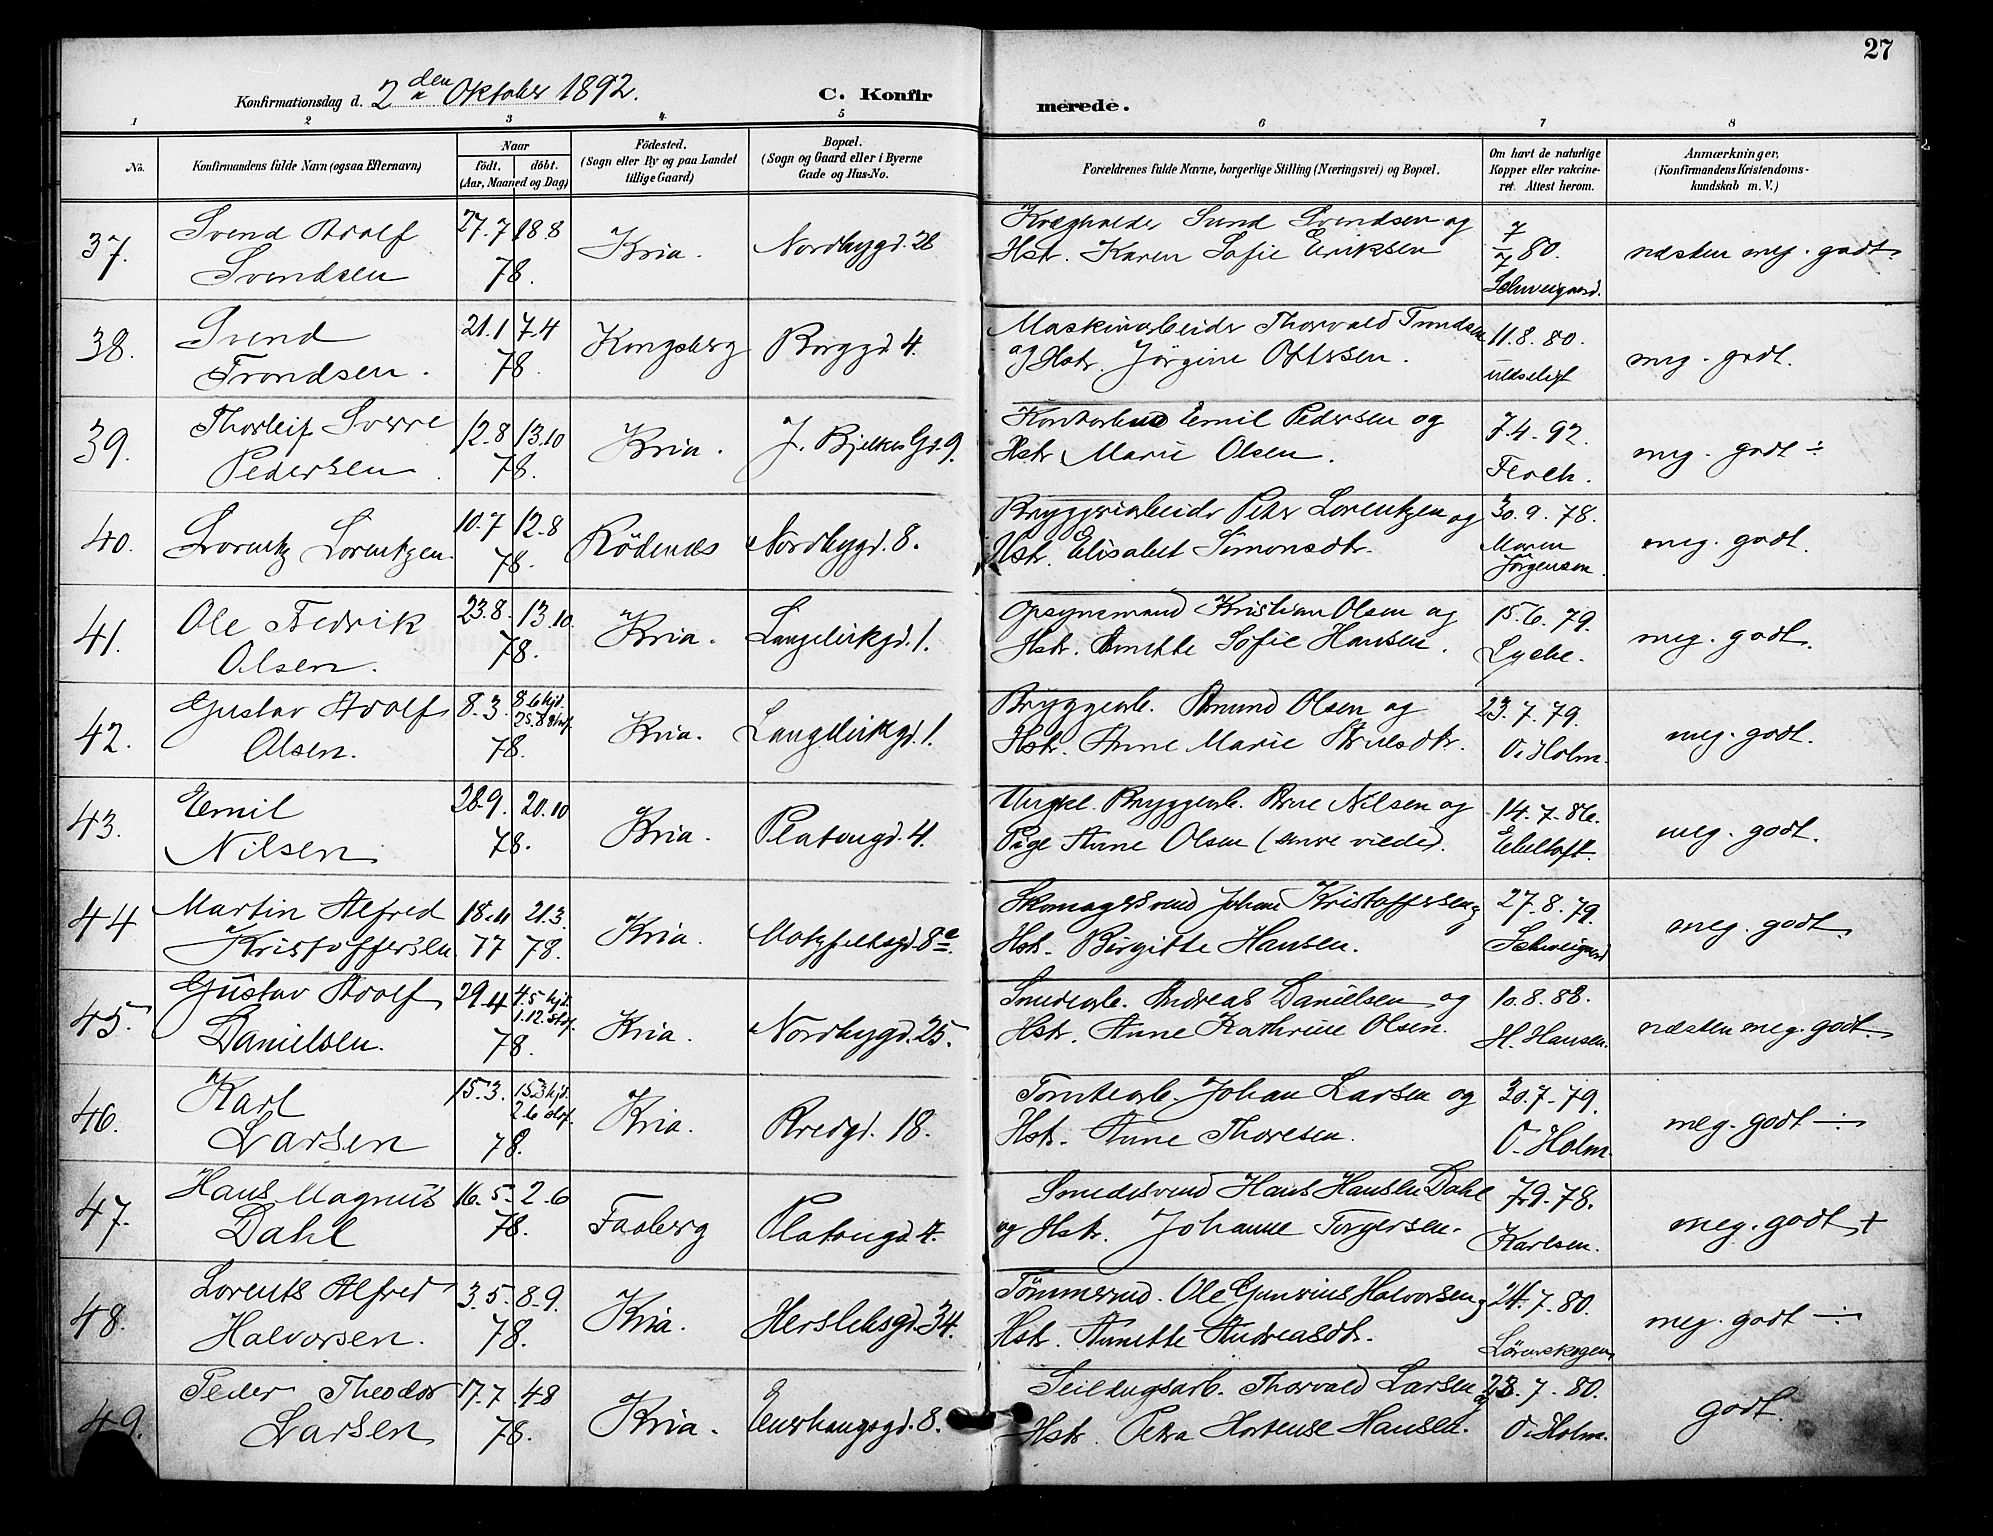 27
Konfirmationsdag d. 2den Oktober 1892.
C. Konfir merede.
1 2 3 4 5 6 7 8
No.
Konfirmandens fulde Navn (ogsaa Efternavn)
Naar
födt. döbt.
(Aar, Maaned og Dag)
Födested.
(Sogn eller By og paa Landet
tillige Gaard)
Bopæl.
(Sogn og Gaard eller i Byerne
Gade og Hus-No.
Forældrenes fulde Navne, borgerlige Stilling (Næringsvei) og Bopæl.
Om havt de naturlige
Kopper eller vakcine-
ret. Attest herom.
Anmærkninger.
(Konfirmandens Kristendoms-
kundskab m. V.)
37. Svend Adolf 27.7 18.8 Kria. Nordbygd. 28 Svend Svendsen og 7/7 80. næsten meg. godt
Svendsen 78. Hstr. Karen Sofie Eriksen Schweigaard.
38. Svend 21.1 7.4 Kongsberg Borggd 4. Maskinarbeider Thorvald Trondsen 11.8.80. meg. godt.
Trondsen. 78. og Hstr. Jörgine Ottersen. ulæseligt
39. Thorleif Sverre 12.8 13.10 Kria. J. Bjelkes Gd. 9. Kontorbud Emil Pedersen og 7.4.92. meg. godt ÷
Pedersen. 78. Hstr. Marie Olsen.
40. Lorentz Lorentzen. 10.7 12.8 Rödenæs Nordbygd. 8. Bryggeriarbeider Peter Lorentzen og 30.9.78. meg. godt.
78. Hstr. Elisabet Simonsdtr. Maren
Jörgensen.
41. Ole Fredrik 23.8. 13.10. Kria. Langleikgd. 1. Opsynsmand Kristian Olsen og 15.6.79. meg. godt.
Olsen. 78. Hstr. Anette Sofie Hansen. Lyche.
42. Gustav Adolf 8.3. 8.6 hjd. Kria. Langleikgd. 1. Bryggearb. Amund Olsen og 23.7.79. meg. godt.
25.8 stadf.
Olsen. 78. Hstr. Anne Marie O. Holm.
43. Emil 28.9. 20.10 Kria. Platougd. 4. Ungkl. Bryggearb. Arne Nilsen og 14.7.86. meg. godt.
Nilsen 78. Pige Anne Olsen (senere viede). Ebeltoft.
44 Martin Alfred 18.11 21.3. Kria. Motzfeldtsgd. 8c. Skomagersvend Johan Kristoffersen og 27.8.79. meg. godt.
Kristoffersen 77 78. Hstr. Birgitte Hansen. Schweigaard
45. Gustav Adolf 29.4 4.5 hjd. Kria. Nordbygd. 25. Smedearb. Andreas Danielsen og 10.8.88. næsten meg. godt.
1.12. stadf.
Danielsen. 78. Hstr. Anne Kathrine Olsen. H. Hansen.
46. Karl 15.3. 15.3 hjd. Kria. Bredgd. 18. Tomtearb. Johan Larsen og 30.7.79. meg. godt ÷
2.6 stadf.
Larsen 78. Hstr. Anne Thoresen. O. Holm.
47. Hans Magnus 16.5. 2.6 Faaberg Platougd. 4. Smedesvend Hans Hansen Dahl 7.9.78. meg. godt +
Dahl 78. og Hstr. Johanne Torgersen. Karlsen.
48. Lorents Alfred 3.5. 8.9. Kria. Herslebsgd. 34. Tömmermd. Ole Gunerius Halvorsen og 24.7.80. meg. godt ÷
Halvorsen. 78. Hstr. Annette Andreasdtr. Lörenskogen
49. Peder Theodor 17.7 4.8 Kria. Enerhaugsgd. 8. Seildugsarb. Thorvald Larsen og 28.7.80. godt.
Larsen 78. Hstr. Petra Hortense Hansen. O. Holm.